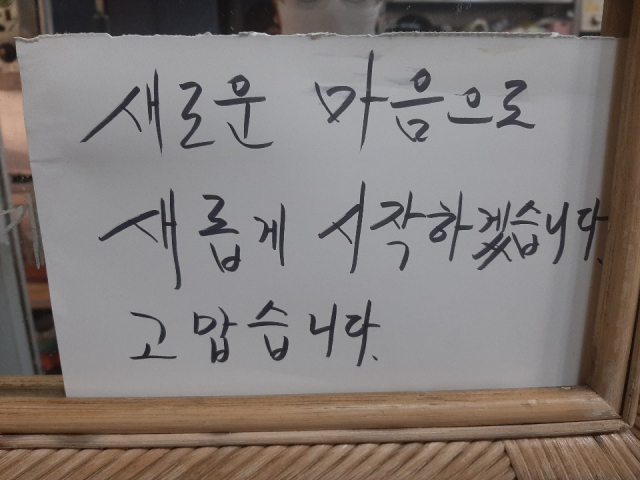 새로운 마음으로
새롭게 시작하겠습니다.
고맙습니다.